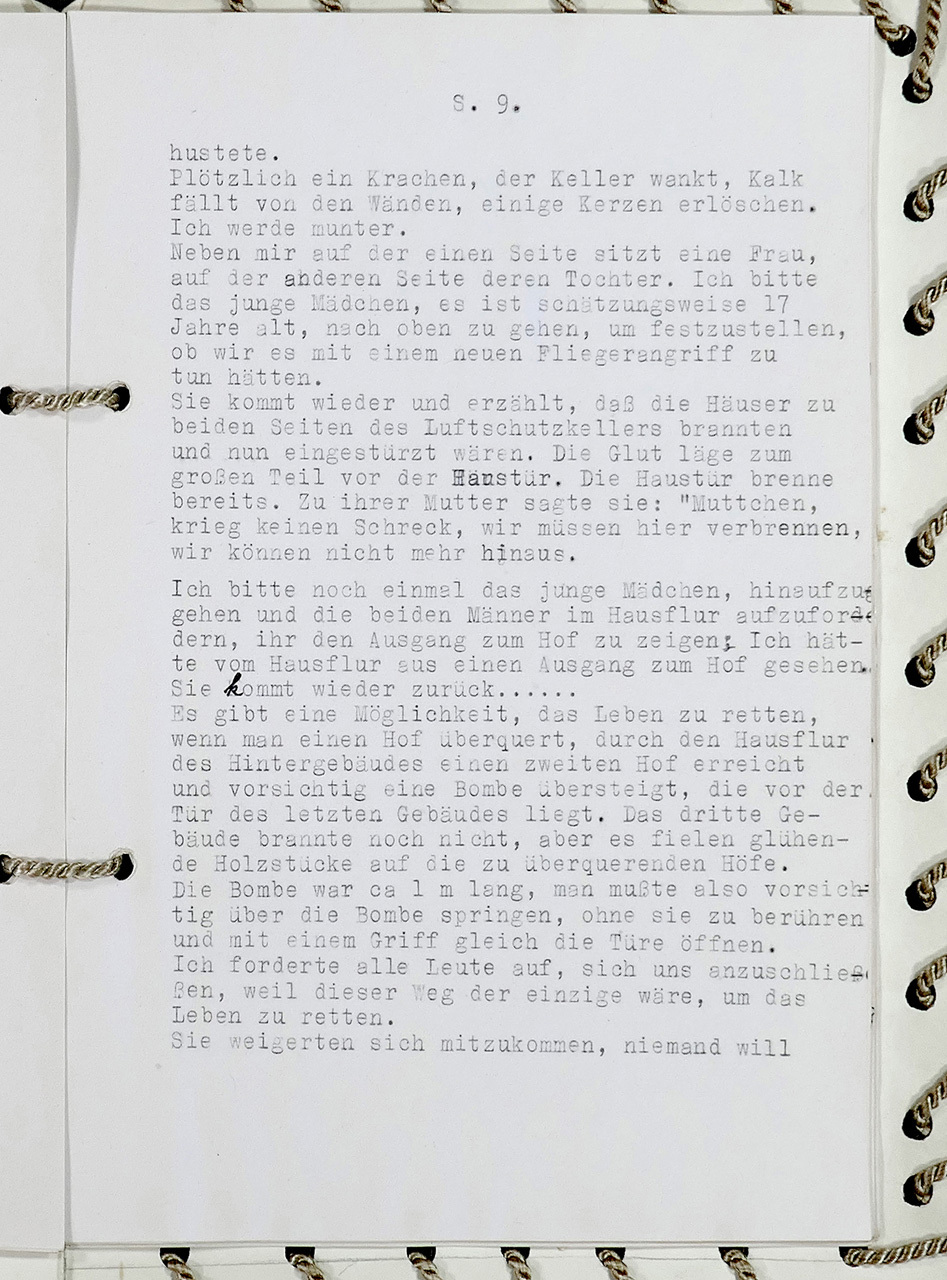 S. 9.
hustete.
Plötzlich ein Krachen, der Keller wankt, Kalk
fällt von den Wänden, einige Kerzen erlöschen.
Ich werde munter.
Neben mir auf der einen Seite sitzt eine Frau,
auf der anderen Seite deren Tochter. Ich bitte
das junge Mädchen, es ist schätzungsweise 17
Jahre alt, nach oben zu gehen, um festzustellen,
ob wir es mit einem neuen Fliegerangriff zu
tun hätten.
Sie kommt wieder und erzählt, daß die Häuser zu
beiden Seiten des Luftschutzkellers brannten
und nun eingestürzt wären. Die Glut läge zum
großen Teil vor der Haustür. Die Haustür brenne
bereits. Zu ihrer Mutter sagte sie: "Muttchen,
krieg keinen Schreck, wir müssen hier verbrennen,
wir können nicht mehr hinaus.
Ich bitte noch einmal das junge Mädchen, hinaufzu
gehen und die beiden Männer im Hausflur aufzufor
dern, ihr den Ausgang zum Hof zu zeigen; Ich hät-
te vom Hausflur aus einen Ausgang zum Hof gesehen.
Sie kommt wieder zurück......
Es gibt eine Möglichkeit, das Leben zu retten,
wenn man einen Hof überquert, durch den Hausflur
des Hintergebäudes einen zweiten Hof erreicht
und vorsichtig eine Bombe übersteigt, die vor der
Tür des letzten Gebäudes liegt. Das dritte Ge-
bäude brannte noch nicht, aber es fielen glühen-
de Holzstücke auf die zu überquerenden Höfe.
Die Bombe war ca 1 m lang, man mußte also vorsich-
tig über die Bombe springen, ohne sie zu berühren
und mit einem Griff gleich die Türe öffnen.
Ich forderte alle Leute auf, sich uns anzuschlie
ßen, weil dieser Weg der einzige wäre, um das
Leben zu retten.
Sie weigerten sich mitzukommen, niemand will